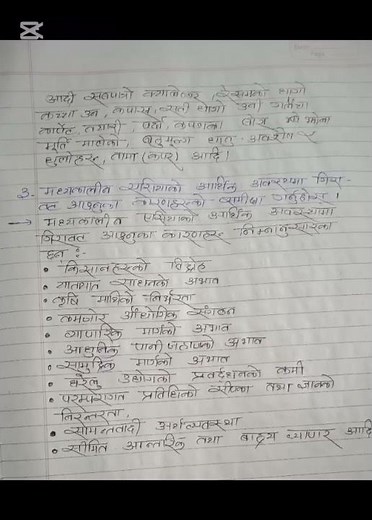 आदी सतपानी क्यालेन्डर, रेसमको धागो
कच्चा उन, कपास, सुती धागो उनी गलैचा
कार्पेट, तयारी पर्दा, कपडाका
मूर्ति मालेको, बहुमूल्य धातु अवशेष र
धुलोहरू, तामा (कपर) आदि।
३. मध्यकालीन एसियाको आर्थिक अवस्थामा गिरा-
वट आउनुका कारणहरूको समीक्षा गर्नुहोस्।
→ मध्यकालीन एसियाको आर्थिक अवस्थामा
गिरावट आउनुका कारणहरू निम्नानुसारका
छन् :-
• किसानहरूको विद्रोह
• यातायात साधनको अभाव
• कृषि माथिको निर्भरता
• कमजोर औद्योगिक संगठन
• व्यापारिक मार्गको अभाव
• आधुनिक पानी जहाजको अभाव
• सामुद्रिक मार्गको अभाव
• घरेलु उद्योगको प्रवर्दशनको कमी
• परम्परागत प्रविधिको सीपका तथा ज्ञानको
निरन्तरता,
• सामन्तवादी अर्थव्यवस्था
• सीमित आन्तरिक तथा बाह्य व्यापार आदि